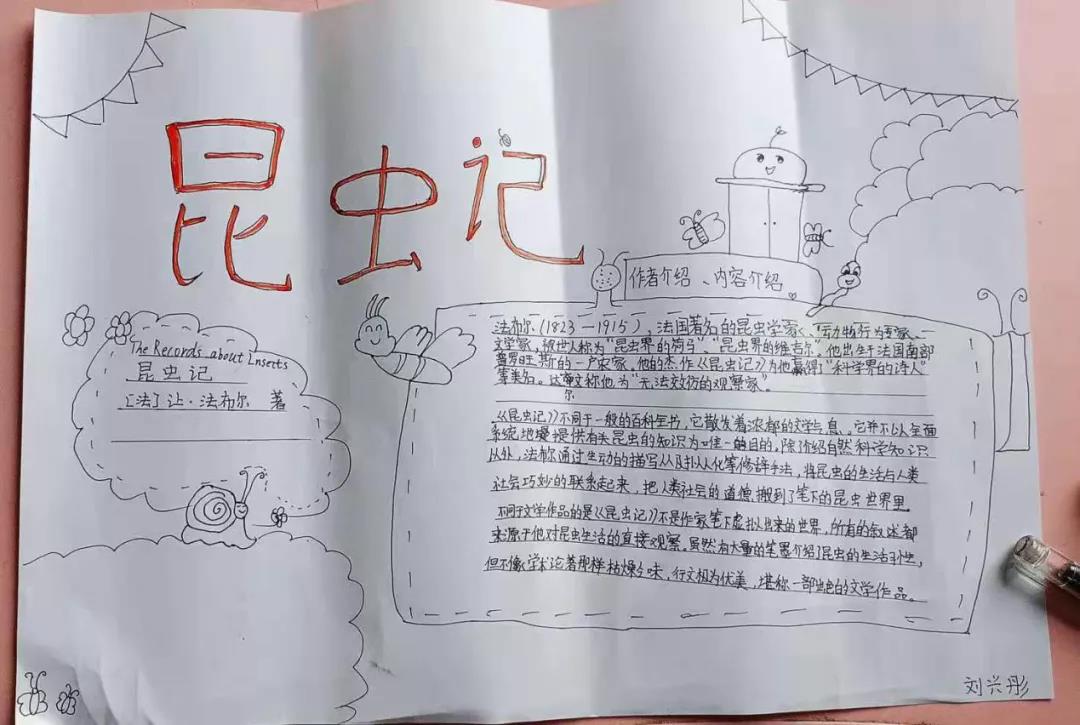 昆虫记
The Records about Insetts
昆虫记
[法]让·法布尔 著
作者介绍、内容介绍
法布尔(1823—1915),法国著名的昆虫学家、动物行为专家、
文学家,被世人称为"昆虫界的荷马","昆虫界的维吉尔"。他出生于法国南部
普罗旺斯的一户农家,他的杰作《昆虫记》为他赢得了"科学界的诗人"
等美名。达尔文称他为"无法效仿的观察家"。
《昆虫记》不同于一般的百科全书,它散发着浓郁的文学气息。它并不以全面
系统地提供有关昆虫的知识为唯一的目的,除介绍自然科学知识
以外,法布尔通过生动的描写以及拟人化等修辞手法,将昆虫的生活与人类
社会巧妙的联系起来,把人类社会的道德搬到了笔下的昆虫世界里
不同于文学作品的是《昆虫记》不是作家笔下虚拟出来的世界,所有的叙述都
来源于他对昆虫生活的直接观察。虽然有大量的笔墨介绍了昆虫的生活习性,
但不像学术论着那样枯燥乏味,行文极为优美,堪称一部出色的文学作品。
刘兴彤